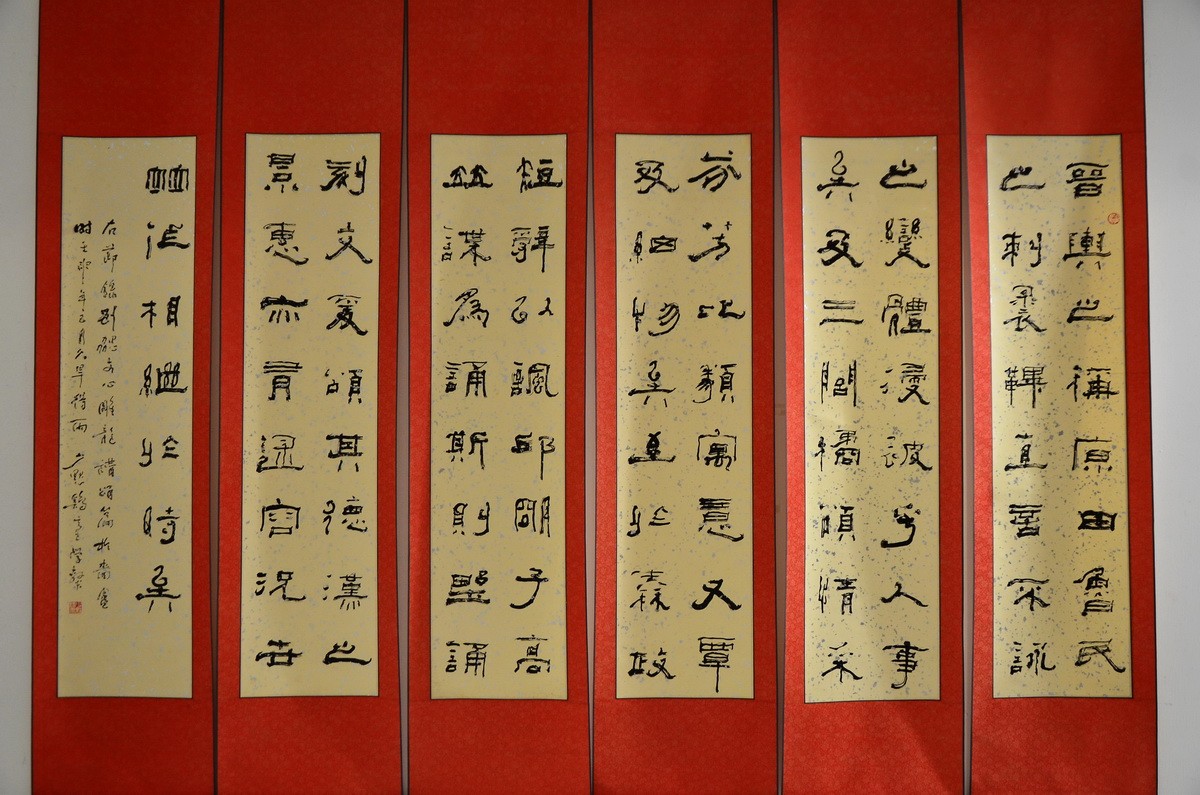 晉輿之稱原田魯民
之刺裘鞸直言不詠
之變體浸被乎人事
矣及三閭橘頌情采
芬芳比類寓意又覃
及細物矣至於秦政
短辭以諷邱明子高
並諜為誦斯則野誦
刻文爰頌其德漢之
景惠亦有述容況世
並作相繼於時矣
右節錄劉勰文心雕龍讚頌篇於
時壬申年三月久旱得雨